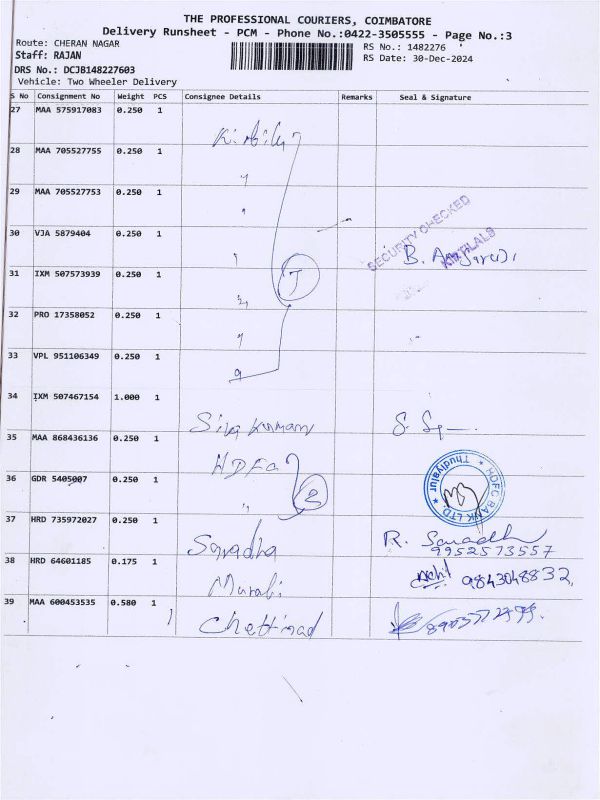 THE PROFESSIONAL COURIERS, COIMBATORE
Delivery Runsheet - PCM - Phone No.:0422-3505555 - Page No.:3
Route: CHERAN NAGAR RS No.: 1482276
Staff: RAJAN RS Date: 30-Dec-2024
DRS No.: DCJB148227603
Vehicle: Two Wheeler Delivery
S No Consignment No Weight PCS Consignee Details Remarks Seal & Signature
27 MAA 575917083 0.250 1
28 MAA 705527755 0.250 1
"
29 MAA 705527753 0.250 1
"
30 VJA 5879404 0.250 1
" SECURITY CHECKED B.
31 IXM 507573939 0.250 1
J
"
32 PRO 17358052 0.250 1
"
33 VPL 951106349 0.250 1
"
34 IXM 507467154 1.000 1
Siva Kumar S.
35 MAA 868436136 0.250 1
HDFC
36 GDR 5405007 0.250 1
" 2 HDFC BANK LTD. * Thudiyalur *
37 HRD 735972027 0.250 1
Saradha R. Saradha
9952573557
38 HRD 64601185 0.175 1
Murali 9843048832
39 MAA 600453535 0.580 1
Chettinad